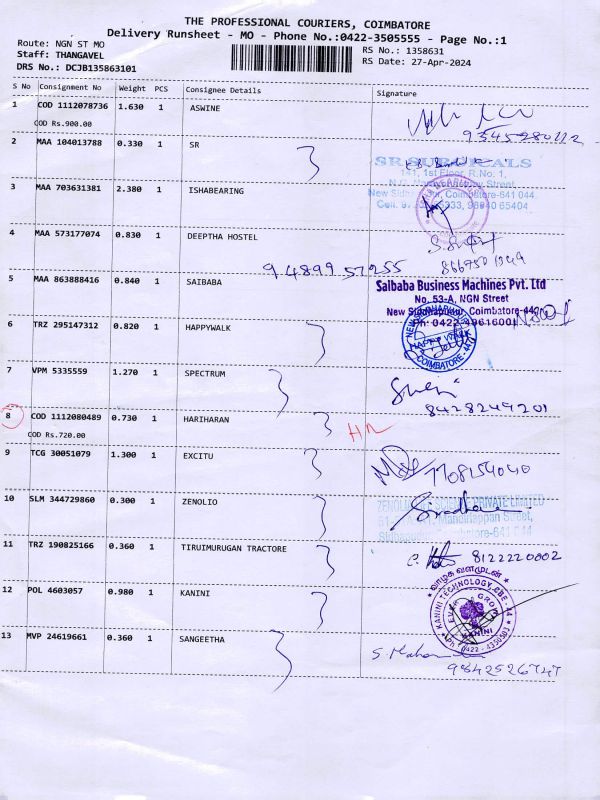 THE PROFESSIONAL COURIERS, COIMBATORE
Delivery Runsheet - MO - Phone No.:0422-3505555 - Page No.:1
Route: NGN ST MO
Staff: THANGAVEL
DRS No.: DCJB135863101
RS No.: 1358631
RS Date: 27-Apr-2024
S No Consignment No Weight PCS Consignee Details Signature
1 COD 1112078736 1.630 1 ASWINE
COD Rs.900.00
2 MAA 104013788 0.330 1 SR
SR SURGICALS
141, 1st Floor, R.No. 1,
3 MAA 703631381 2.380 1 ISHABEARING
4 MAA 573177074 0.830 1 DEEPTHA HOSTEL
9 4899 57255
5 MAA 863888416 0.840 1 SAIBABA
Saibaba Business Machines Pvt. Ltd
No. 53-A, NGN Street
New Siddhapudur, Coimbatore-44
Ph: 0422-4961600
6 TRZ 295147312 0.820 1 HAPPYWALK
HAPPY WALK
COIMBATORE - 44
7 VPM 5335559 1.270 1 SPECTRUM
8428249201
8 COD 1112080489 0.730 1 HARIHARAN
COD Rs.720.00
9 TCG 30051079 1.300 1 EXCITU
7708154040
10 SLM 344729860 0.300 1 ZENOLIO
11 TRZ 190825166 0.360 1 TIRUIMURUGAN TRACTORE
8122220002
12 POL 4603057 0.980 1 KANINI
வாழ்க வளமுடன்
KANINI TECHNOLOGY, CBE - 44
KANINI
Ph : 0422 - 4350503
13 MVP 24619661 0.360 1 SANGEETHA
9842526747